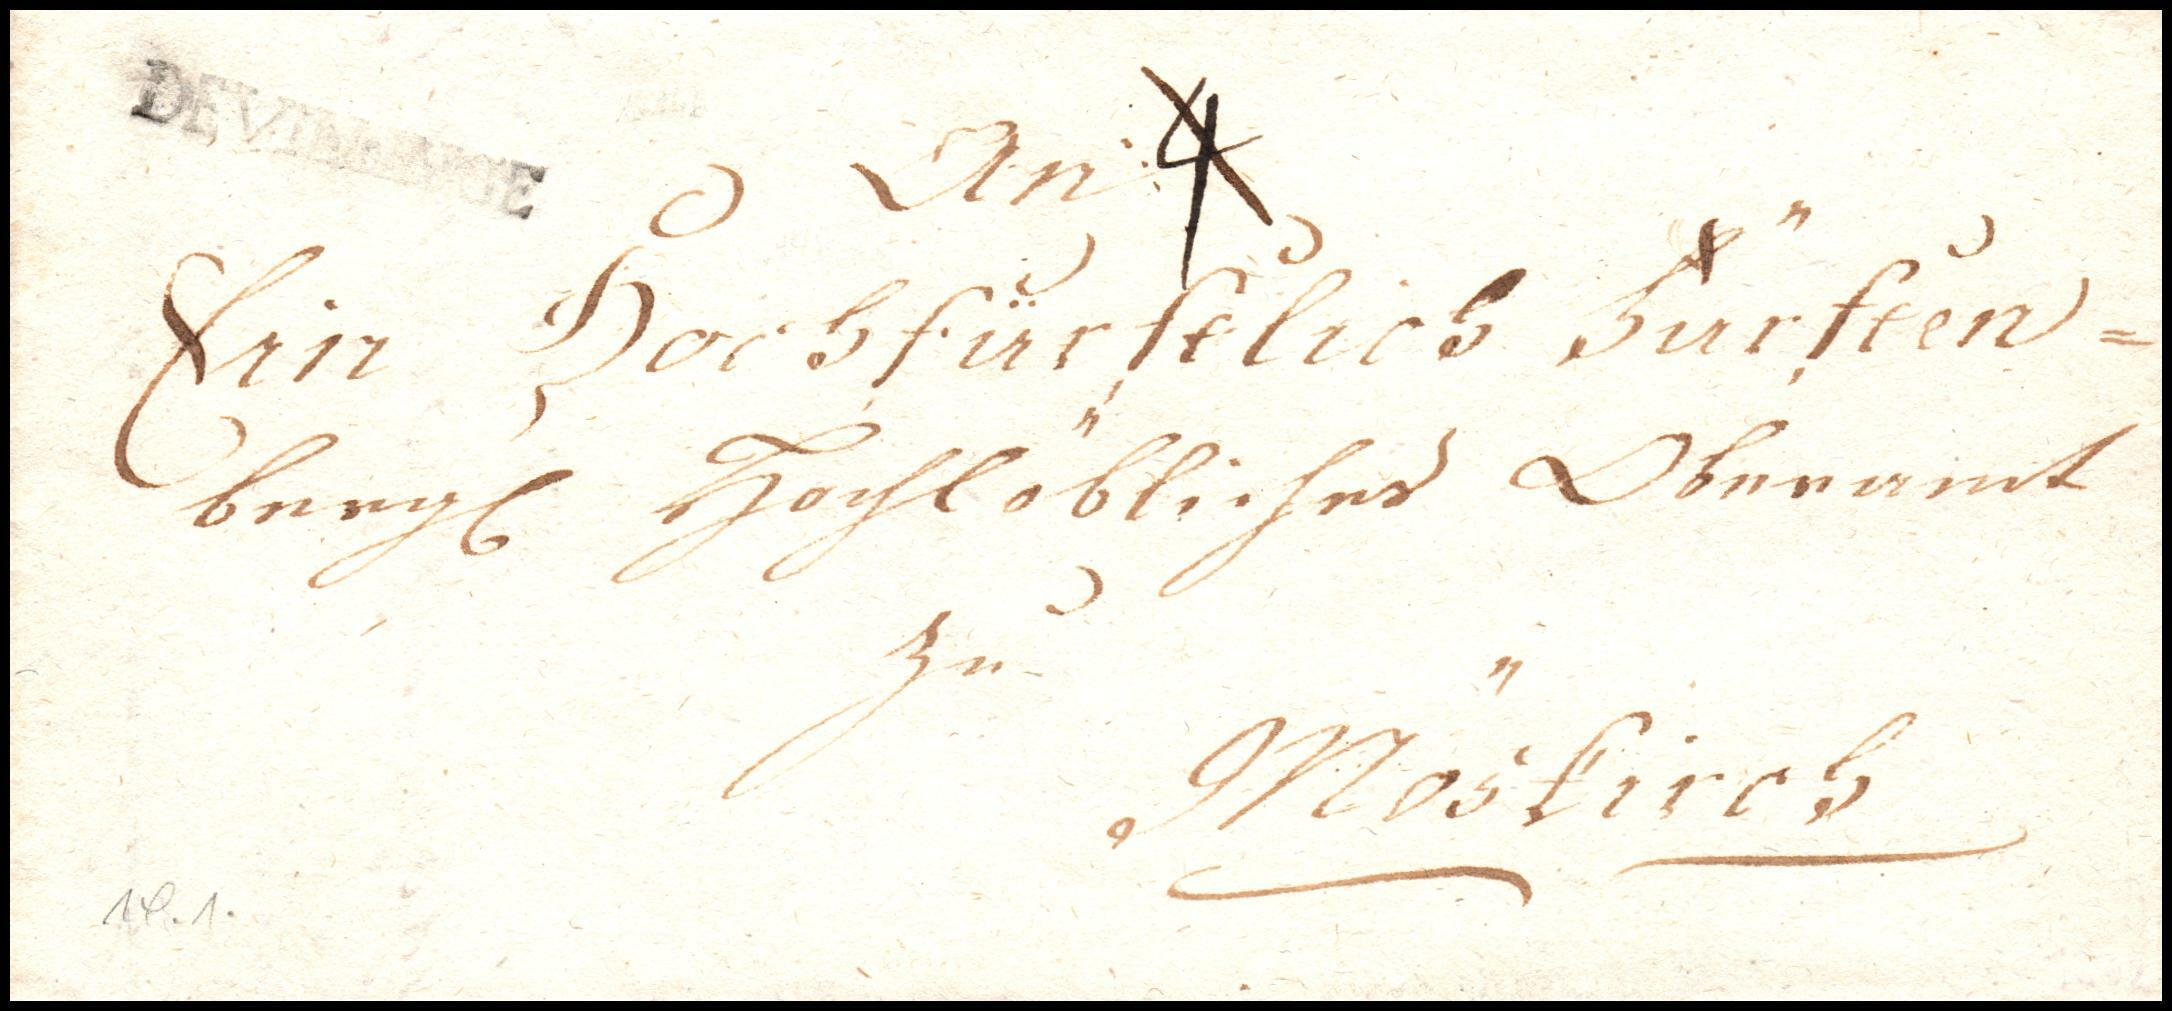 DE VILLINGE
An
4
Ein Hochfürstlich Fürsten=
bergl Hochlöbliches Oberamt
zu
Möskirch